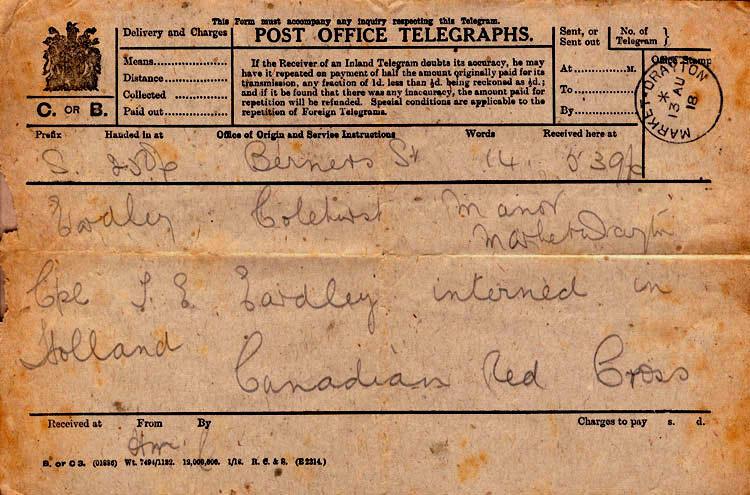 This Form must accompany any inquiry respecting this Telegram.
POST OFFICE TELEGRAPHS.
C. OR B.
Delivery and Charges
Means
Distance
Collected
Paid out
If the Receiver of an Inland Telegram doubts its accuracy, he may
have it repeated on payment of half the amount originally paid for its
transmission, any fraction of 1d. less than ½d. being reckoned as ½d.;
and if it be found that there was any inaccuracy, the amount paid for
repetition will be refunded. Special conditions are applicable to the
repetition of Foreign Telegrams.
Sent, or
Sent out
At M.
To
By
No. of
Telegram }
Office Stamp
MARKET-DRAYTON
13 AU
18
Prefix Handed in at Office of Origin and Service Instructions Words Received here at
S. Berners St 14
Eardley Colehurst Manor
Market Drayton
Cpl J. E. Eardley interned in
Holland
Canadian Red Cross
Received at From By Charges to pay s. d.
B. or C 3. (01836) Wt. 7494/1122. 12,000,000. 1/18. R. C. & S. (E 2214.)